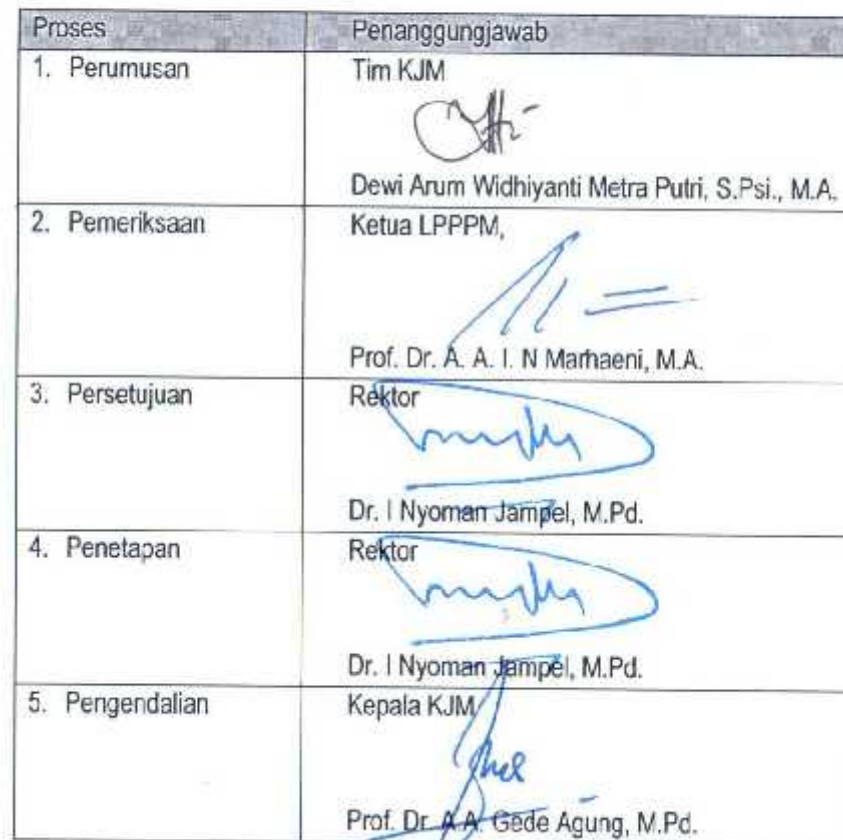 Proses Penanggungjawab
1. Perumusan Tim KJM
Dewi Arum Widhiyanti Metra Putri, S.Psi., M.A.
2. Pemeriksaan Ketua LPPPM,
Prof. Dr. A. A. I. N Marhaeni, M.A.
3. Persetujuan Rektor
Dr. I Nyoman Jampel, M.Pd.
4. Penetapan Rektor
Dr. I Nyoman Jampel, M.Pd.
5. Pengendalian Kepala KJM
Prof. Dr. A.A. Gede Agung, M.Pd.